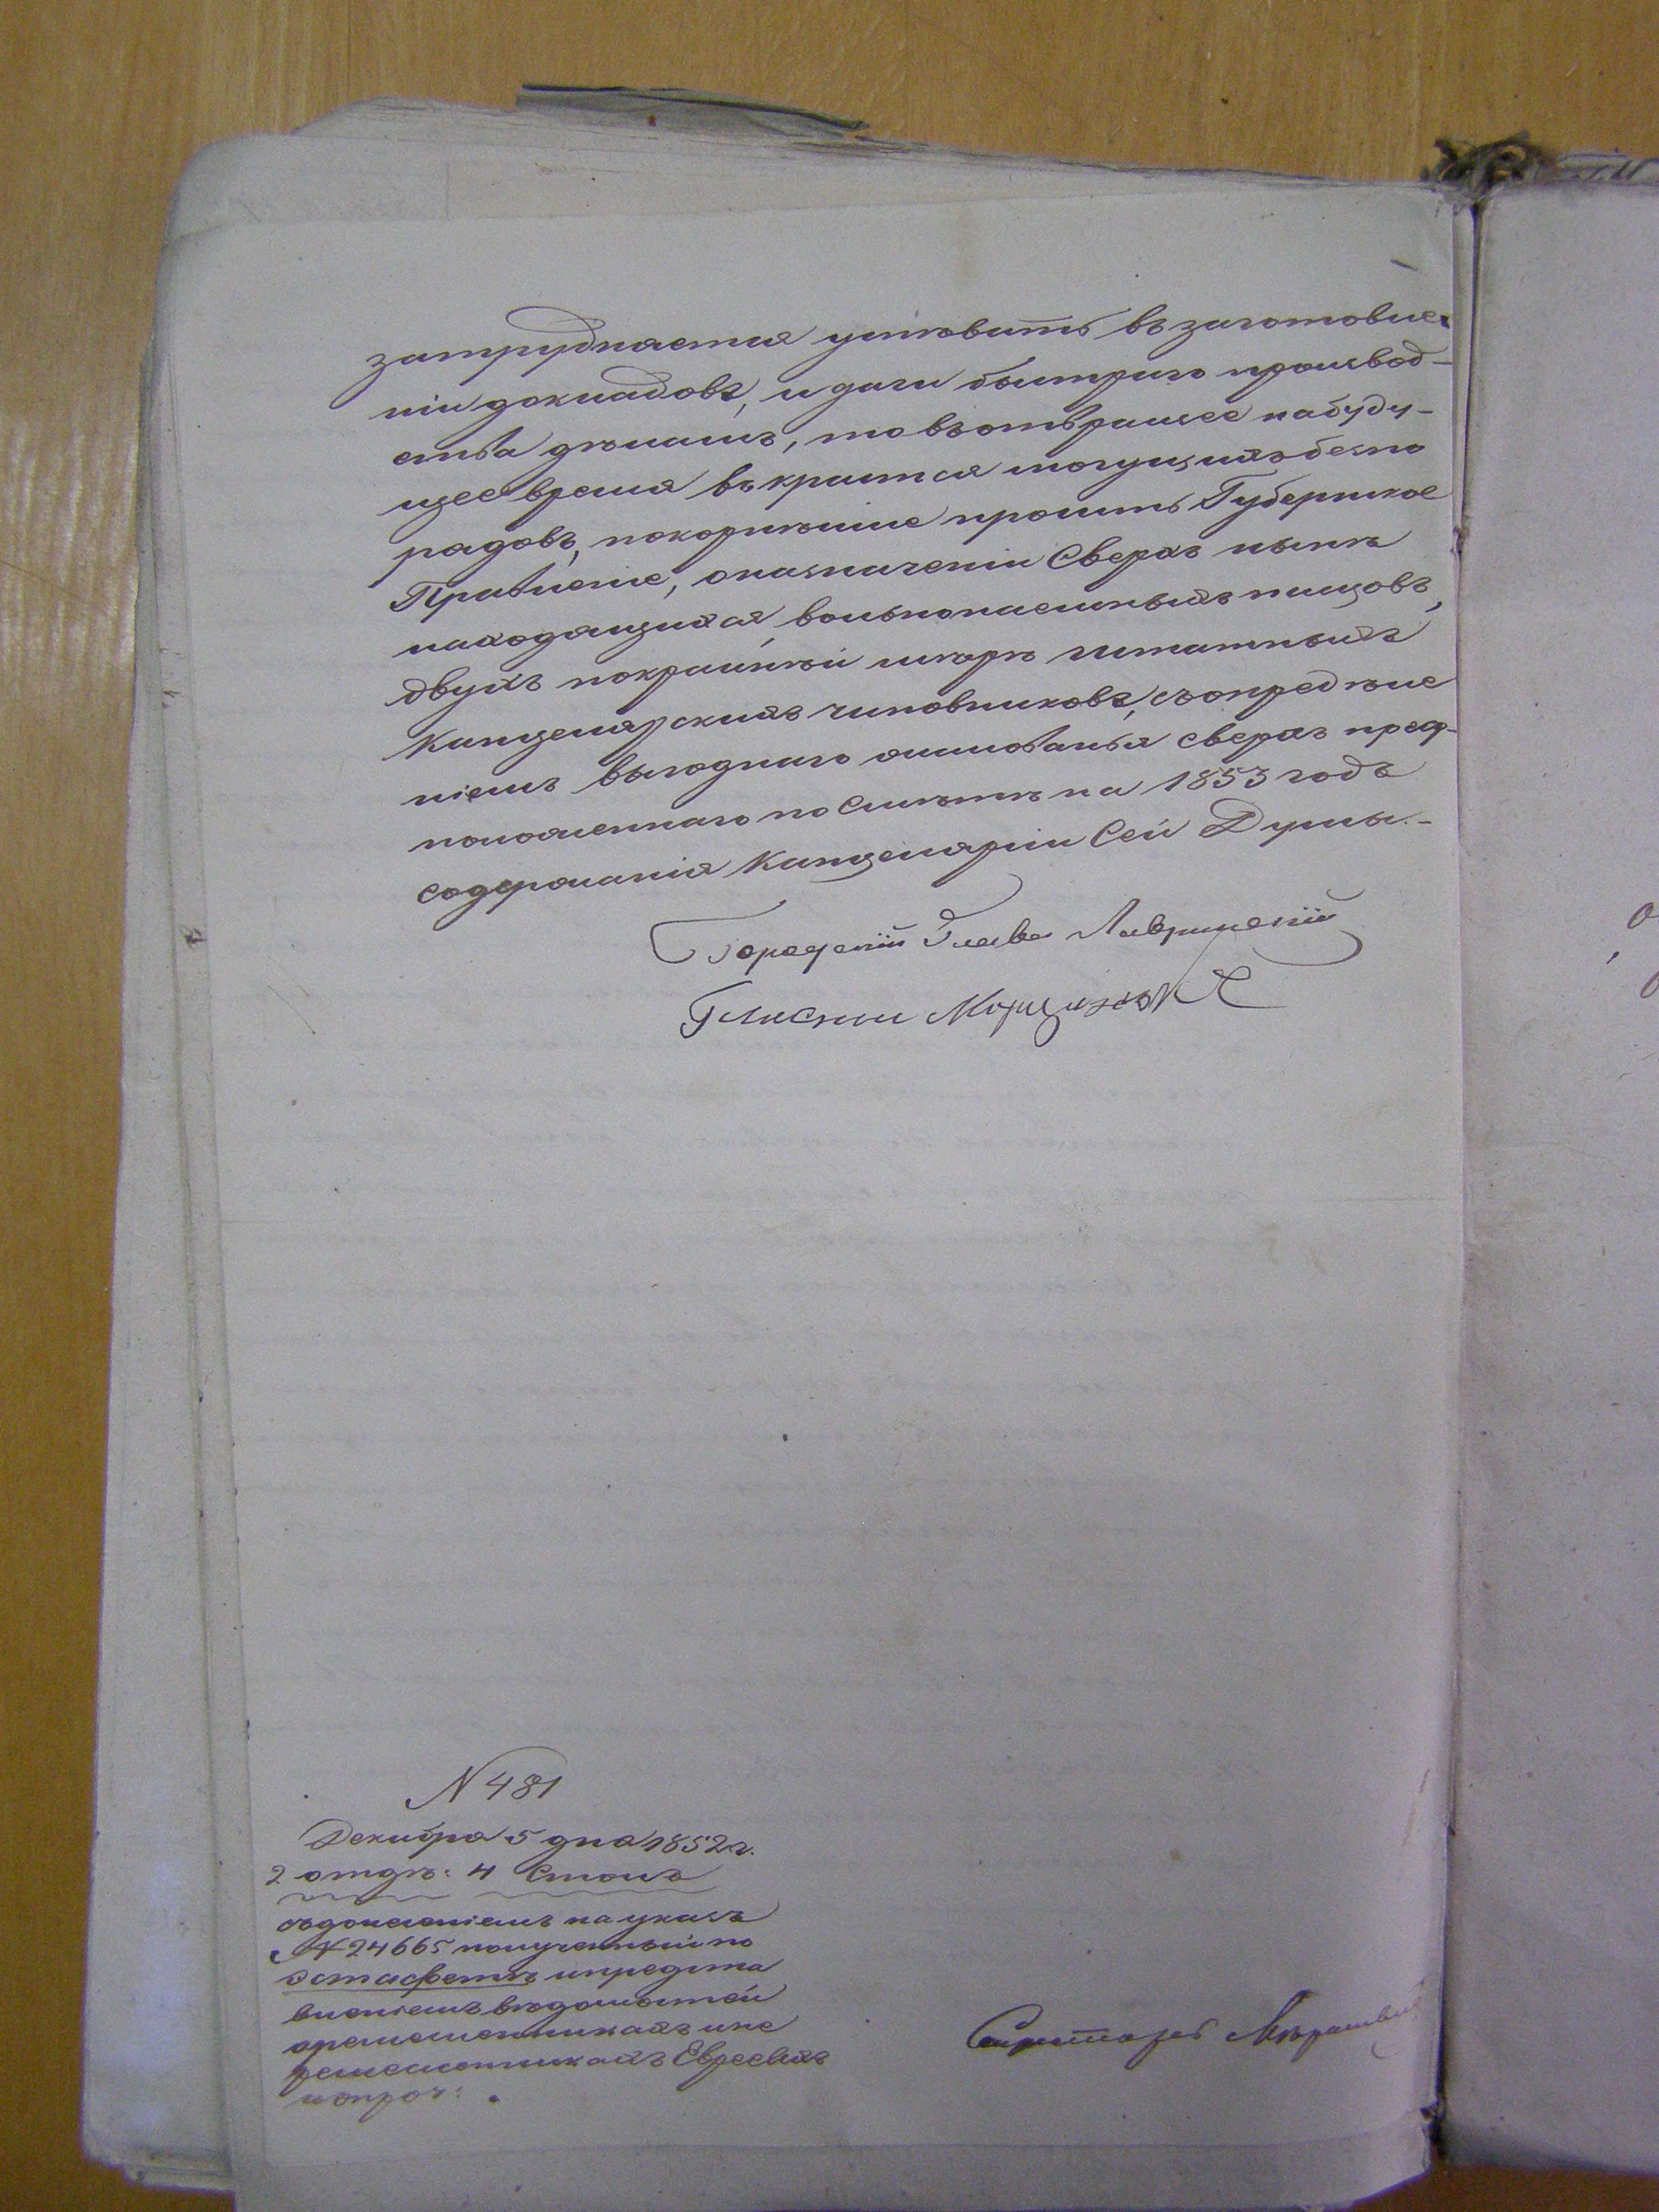 затрудняется успѣвать въ заготовле-
ніи докладовъ, и дачи быстраго производ-
ства дѣламъ, то въ отвращее на буду-
щее время вкрастся могущихъ безпо
рядовъ, покорнѣише просить Губернское
Правленіе, о назначеніи Сверхъ нынѣ
находящихся, вольнонаемныхъ писцовъ,
двухъ покрайнѣй мѣрѣ штатныхъ
Канцелярскихъ чиновниковъ, съ опредѣле
ніемъ выгоднаго жалованья сверхъ пред-
положеннаго по Смѣтѣ на 1853 годъ
содержанія Канцеляріи Сей Думы.-
Городскій Глава
Гласный
N 481
Декабря 5 дня 1852 г.
2 отдѣ: 4 Столъ
съ донесеніемъ на указъ
N 24665 полученный по
эстафетѣ и предста
вленіемъ вѣдомостей
о ремесленникахъ и не
ремесленникахъ Евреевъ
и проч:
Секретарь